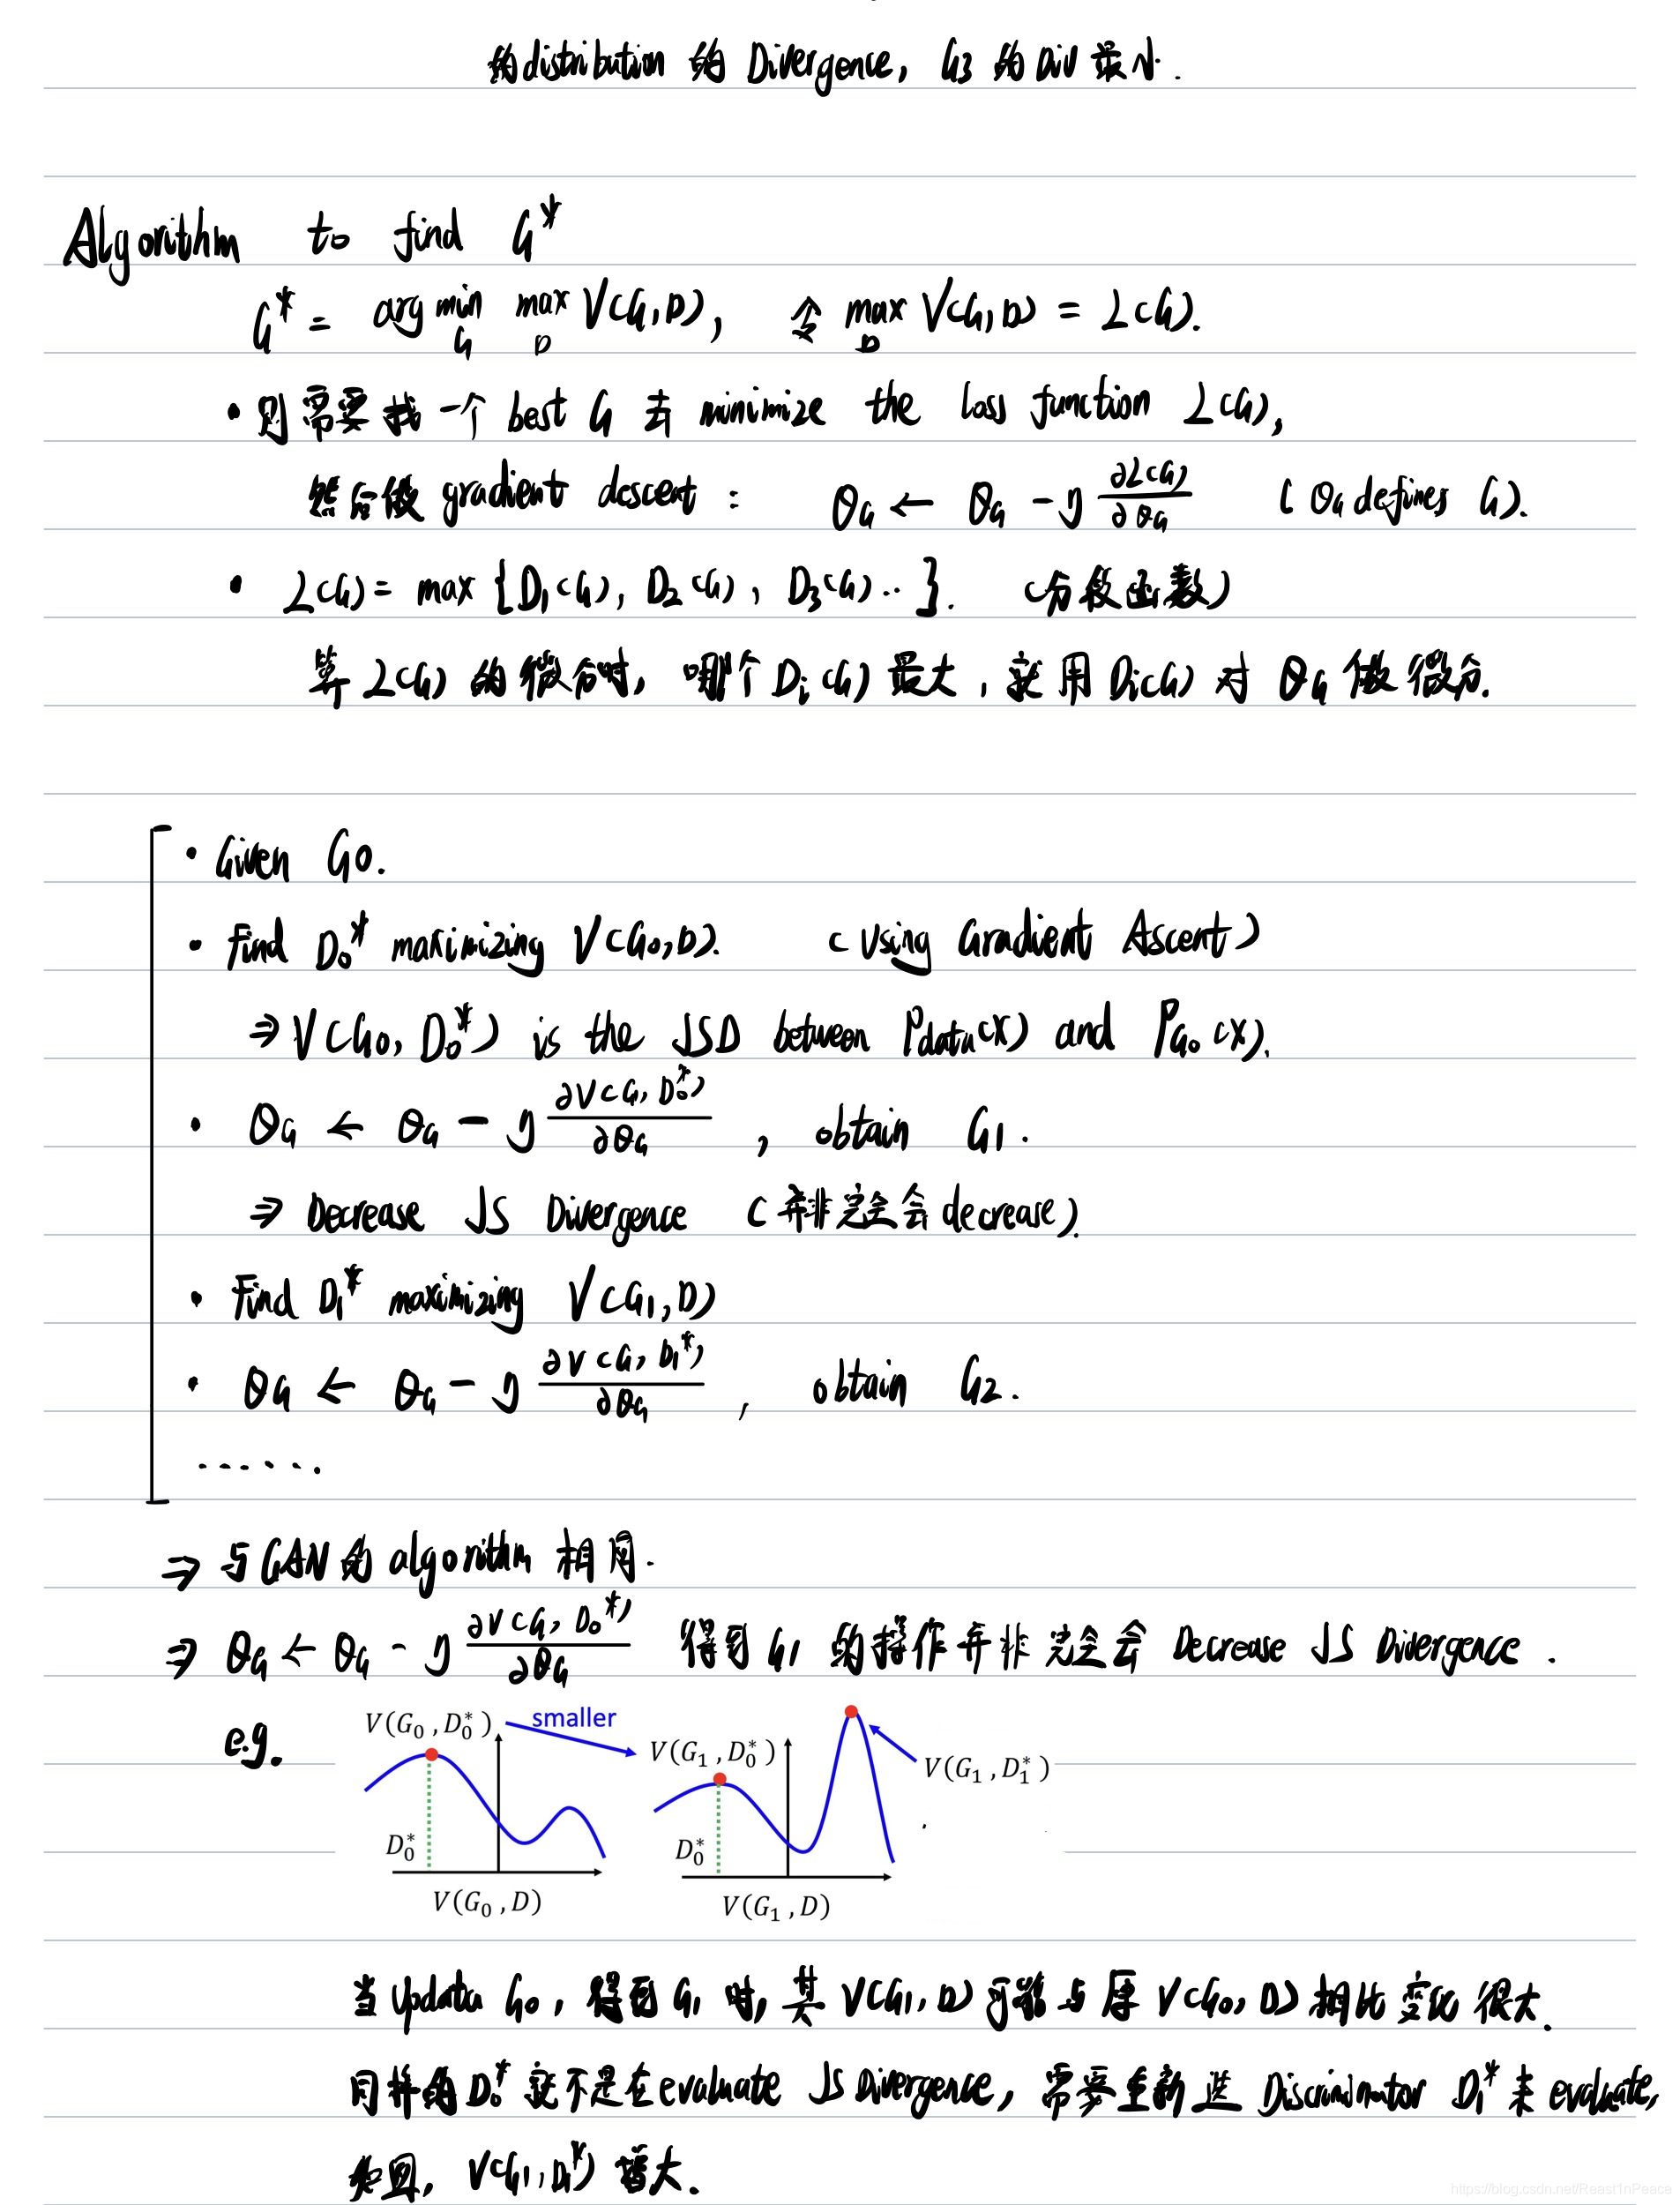 的distribution 的 Divergence, G3 的 Div 最小.
Algorithm to find G*
G* = arg min_G max_D V(G,D), 令 max_D V(G,D) = L(G).
• 则需要找一个 best G 去 minimize the loss function L(G),
然后做 gradient descent : θG ← θG - η ∂L(G)/∂θG ( θG defines G).
• L(G) = max {D1(G), D2(G), D3(G)..}. (分段函数)
算 L(G) 的微分时, 哪个 Di(G) 最大, 就用 Di(G) 对 θG 做微分.
• Given G0.
• Find D0* maximizing V(G0,D). (Using Gradient Ascent)
⇒ V(G0, D0*) is the JSD between Pdata(x) and PG0(x).
• θG ← θG - η ∂V(G, D0*)/∂θG , obtain G1.
⇒ Decrease JS Divergence (并非完全会 decrease).
• Find D1* maximizing V(G1,D)
• θG ← θG - η ∂V(G, D1*)/∂θG , obtain G2.
......
⇒ 与GAN的 algorithm 相同.
⇒ θG ← θG - η ∂V(G, D0*)/∂θG 得到 G1 的操作并非完全会 Decrease JS Divergence .
e.g.
V(G0 , D0*) smaller V(G1 , D0*) V(G1 , D1*)
D0* D0*
V(G0 , D) V(G1 , D)
当 updata G0, 得到 G1 时, 其 V(G1, D) 可能与原 V(G0, D) 相比变化很大.
同样的 D0* 就不是在 evaluate JS Divergence, 需要重新选 Discriminator D1* 来 evaluate,
如图, V(G1, D1*) 增大.
https://blog.csdn.net/Reast1nPeace